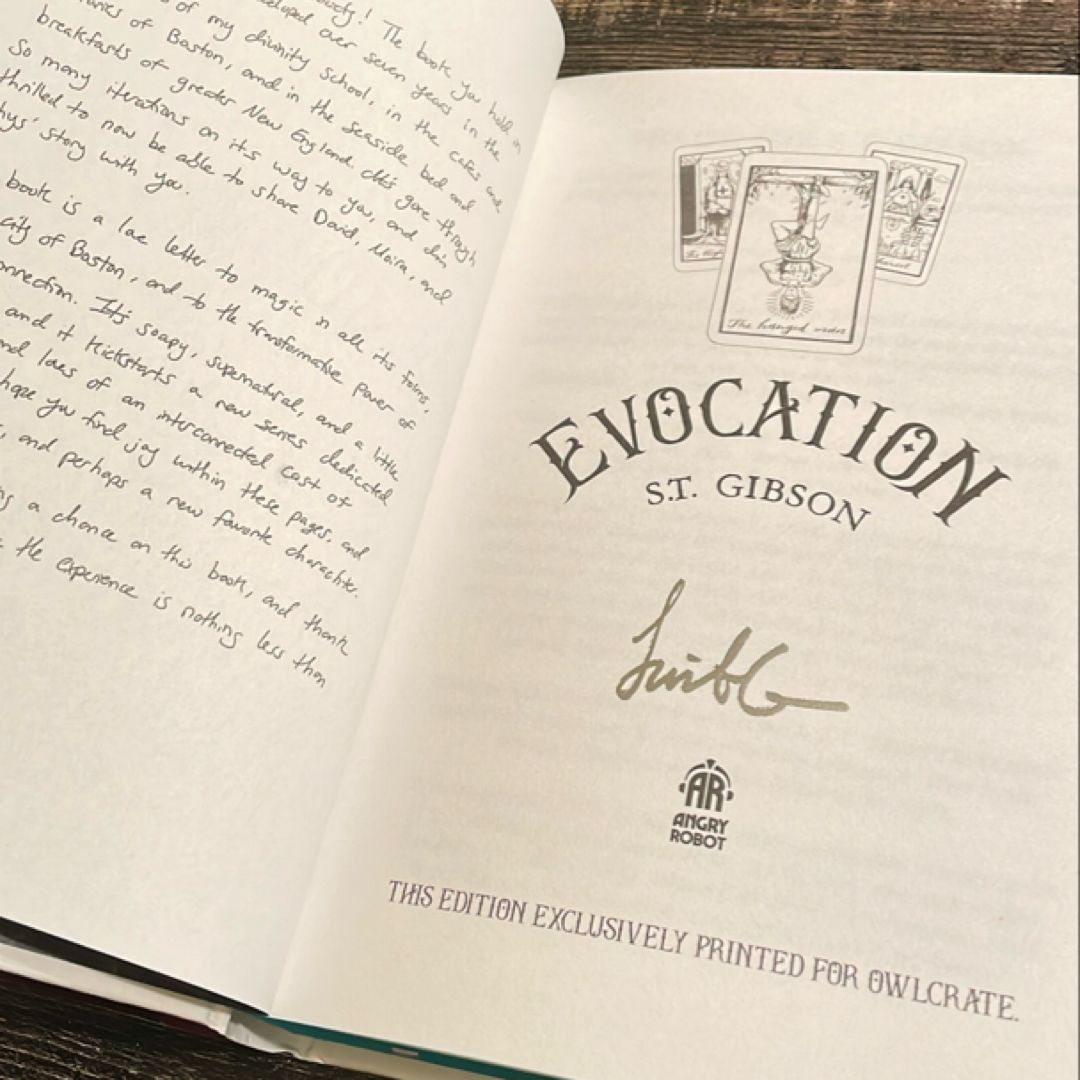 The book you hold in
developed over seven years in the
of my divinity school, in the cafes and
of Boston, and in the seaside bed and
breakfasts of greater New England. It's gone through
So many iterations on its way to you, and I'm
thrilled to now be able to share David, Moira, and
Rhys' story with you.
book is a love letter to magic in all its forms,
city of Boston, and to the transformative power of
connection. It's soapy, supernatural, and a little
and it kickstarts a new series dedicated
and loves of an interconnected cast of
hope you find joy within these pages, and
and perhaps a new favorite charachter.
a chance on this book, and thank
the experience is nothing less than
The hanged man
EVOCATION
S.T. GIBSON
AR
ANGRY
ROBOT
THIS EDITION EXCLUSIVELY PRINTED FOR OWLCRATE.